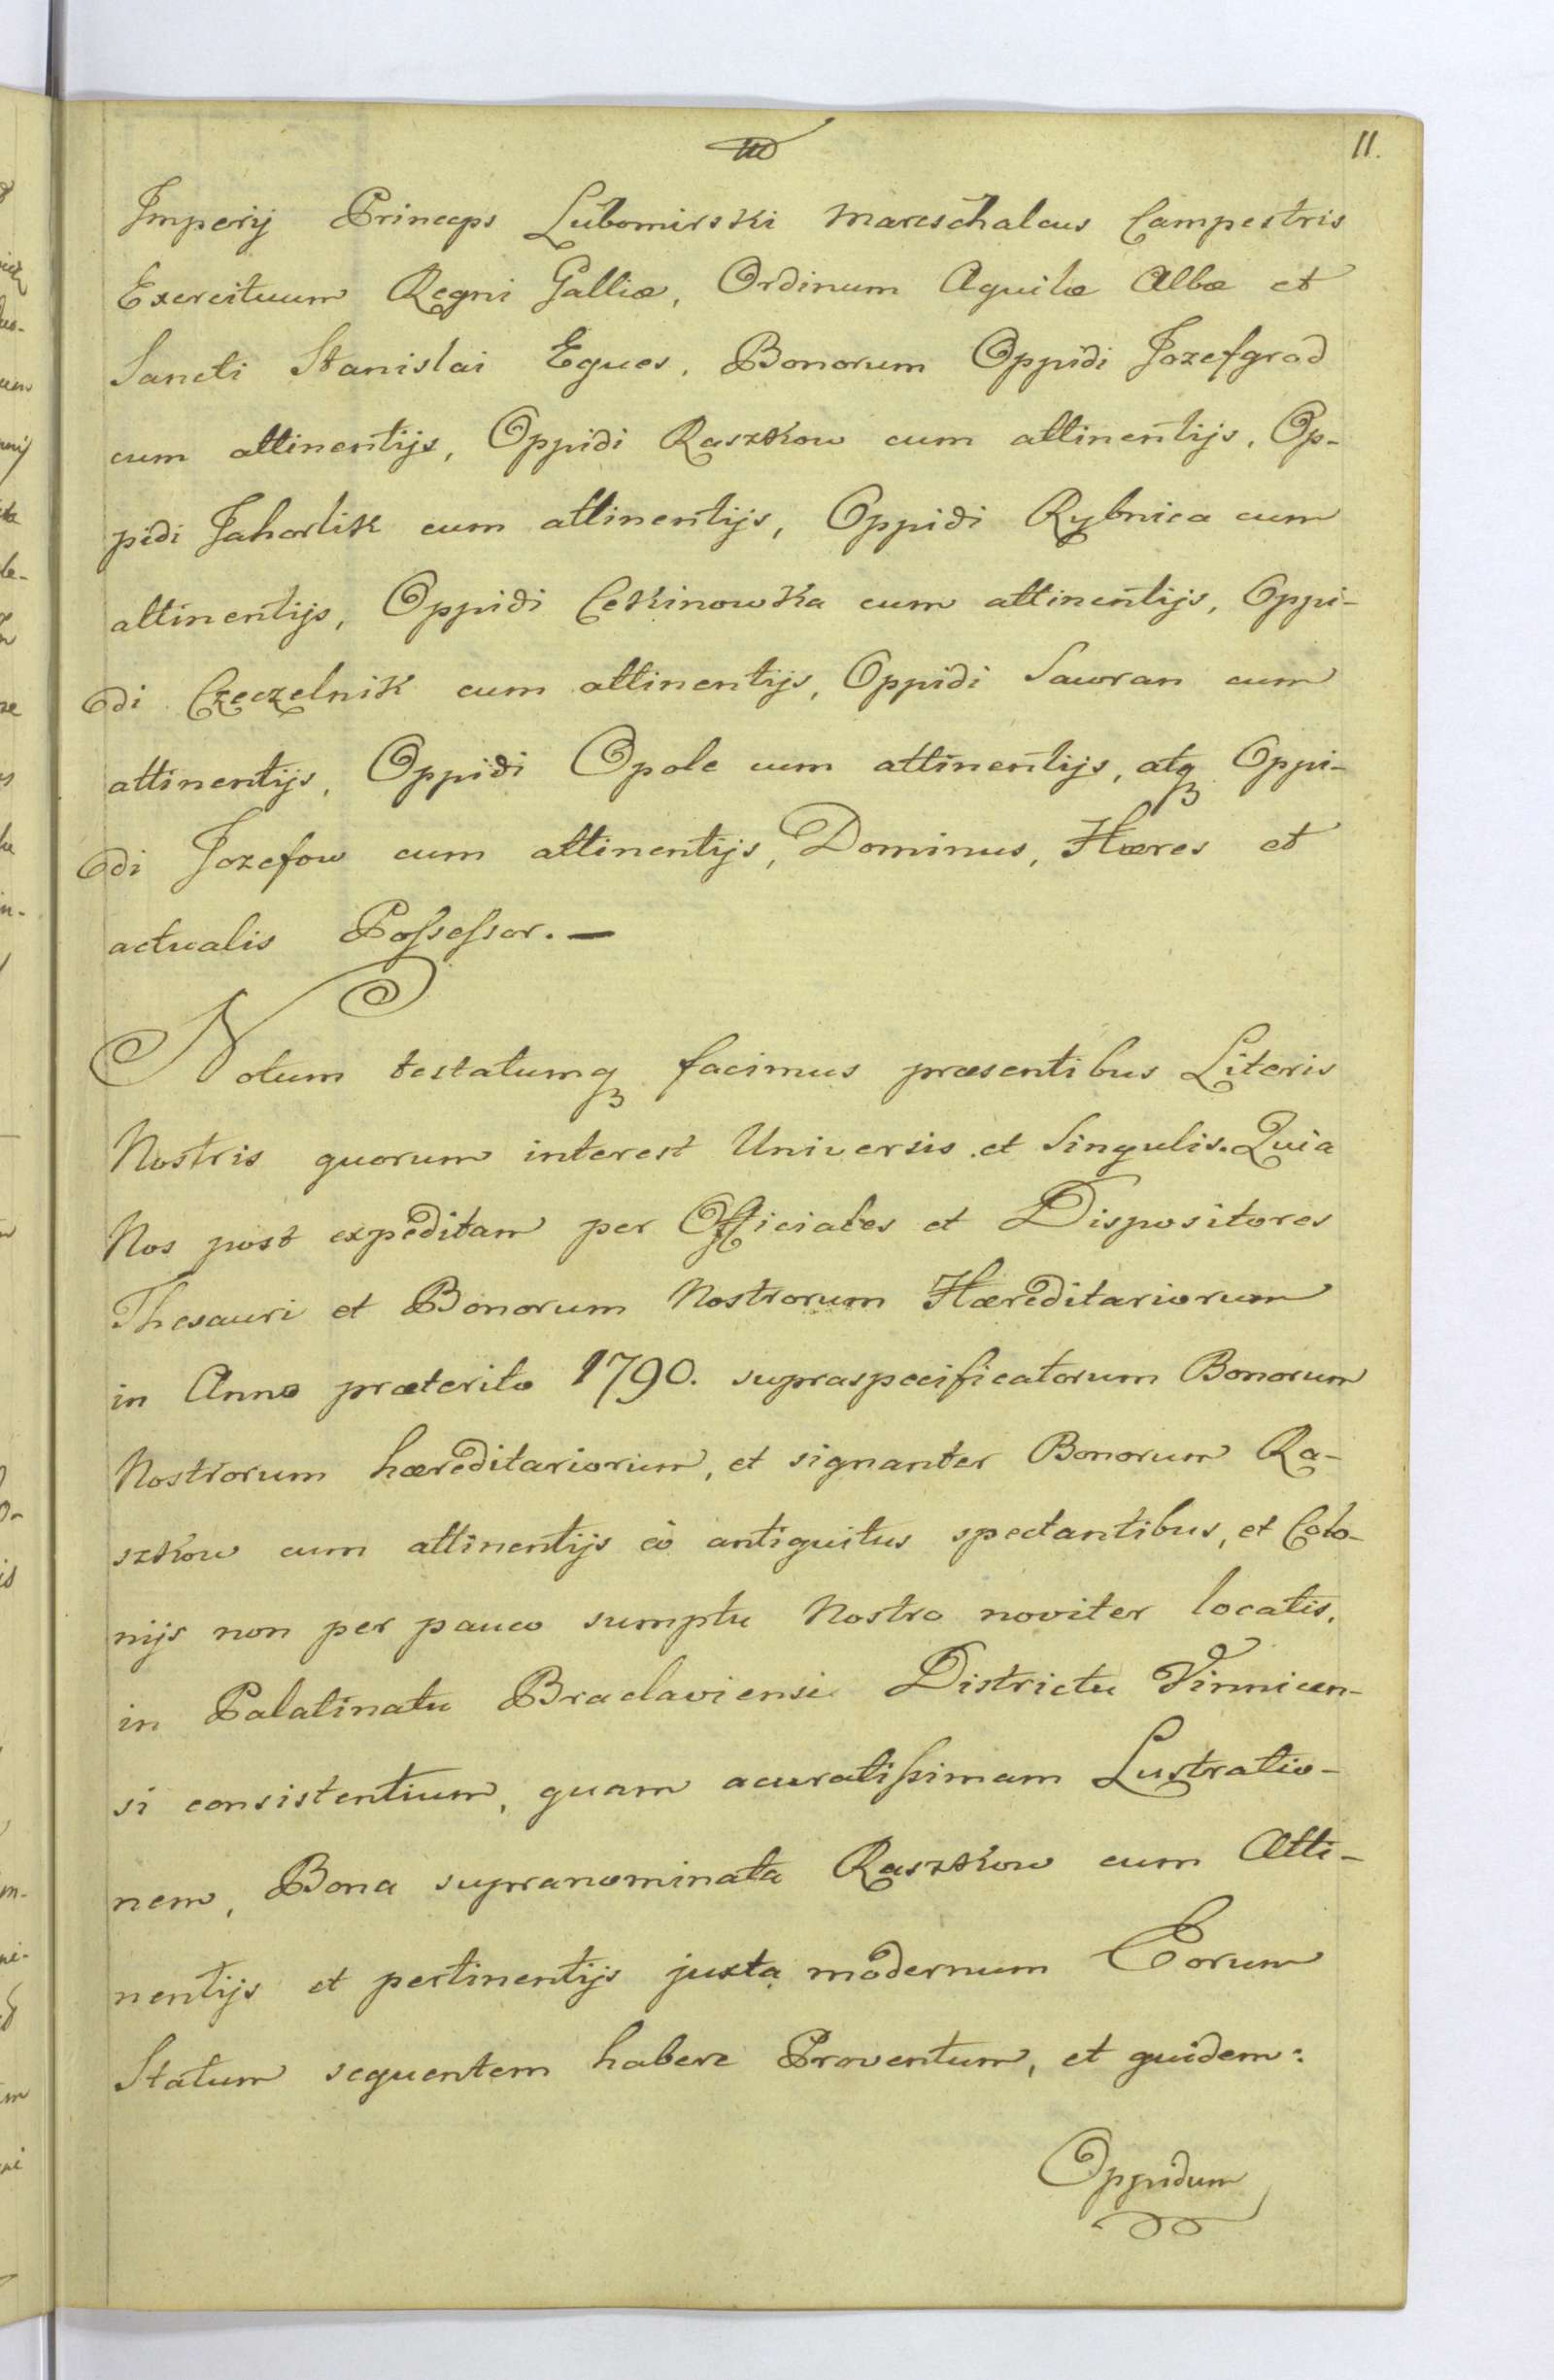 11.
Imperij Princeps Lubomirski Mareschalcus Campestris
Exercituum Regni Galliæ, Ordinum Aquilæ Albæ et
Sancti Stanislai Eques, Bonorum Oppidi Jozefgrod
cum attinentijs, Oppidi Raszkow cum attinentijs, Op-
pidi Jahorlik cum attinentijs, Oppidi Rybnica cum
attinentijs, Oppidi Cekinowka cum attinentijs, Oppi-
di Czeczelnik cum attinentijs, Oppidi Sawran cum
attinentijs, Oppidi Opole cum attinentijs, atqꝫ Oppi-
di Jozefow cum attinentijs, Dominus, Hæres et
actualis Poſseſsor. —
Notum testatumqꝫ facimus præsentibus Literis
Nostris quorum interest Universis et Singulis. Quia
Nos post expeditam per Officiales et Dispositores
Thesauri et Bonorum Nostrorum Hæreditariorum
in Anno præterito 1790. supraspecificatorum Bonorum
Nostrorum hæreditariorum, et signanter Bonorum Ra-
szkow cum attinentijs eò antiquitus spectantibus, et Colo-
nijs non per pauco sumptu Nostro noviter locatis,
in Palatinatu Braclaviensi Districtu Vinnicen-
si consistentium, quam acuratiſsimam Lustratio-
nem, Bona supranominata Raszkow cum Atti-
nentijs et pertinentijs juxta modernum Eorum
Statum sequentem habere Proventum, et quidem:
Oppidum